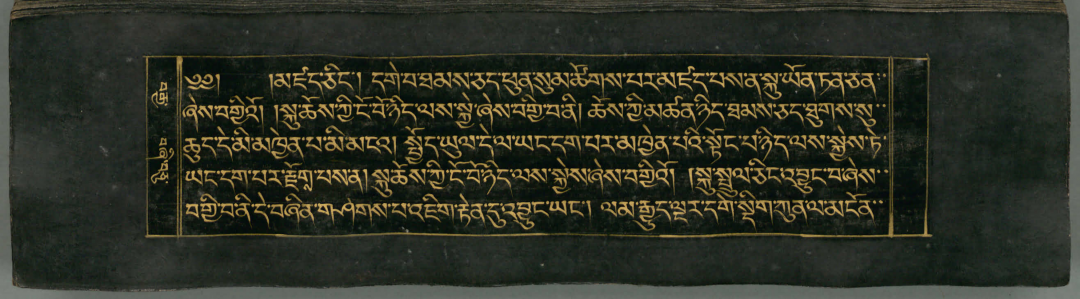 ༄༅། །མཛད་ཅིང་། དགེ་བ་ཐམས་ཅད་ཕུན་སུམ་ཚོགས་པར་མཛད་པས་ན་སྐུ་ཡོན་ཏན་ཅན་
ཞེས་བགྱིའོ། །སྐུ་ཆོས་ཀྱི་ངོ་བོ་ཉིད་ལས་སྐྱེ་ཞེས་བགྱི་བ་ནི། ཆོས་ཀྱི་མཚན་ཉིད་ཐམས་ཅད་ཐུགས་སུ་
ཆུད་དེ་མི་མཁྱེན་པ་མི་མངའ། སྤྱོད་ཡུལ་དེ་ལ་ཡང་དག་པར་མཁྱེན་པའི་སྟོང་པ་ཉིད་ལས་སྐྱེས་ཏེ་
ཡང་དག་པར་རྫོགས་པས་ན། སྐུ་ཆོས་ཀྱི་ངོ་བོ་ཉིད་ལས་སྐྱེས་ཞེས་བགྱིའོ། །སྐུ་སྤྲུལ་ཅིང་འབྱུང་བ་ཞེས་
བགྱི་བ་ནི་དེ་བཞིན་གཤེགས་པ་འཇིག་རྟེན་དུ་འབྱུང་ཡང་། ལམ་རྒྱུད་ལྔར་དགེ་སྡིག་ཀུན་ལ་མངོན་